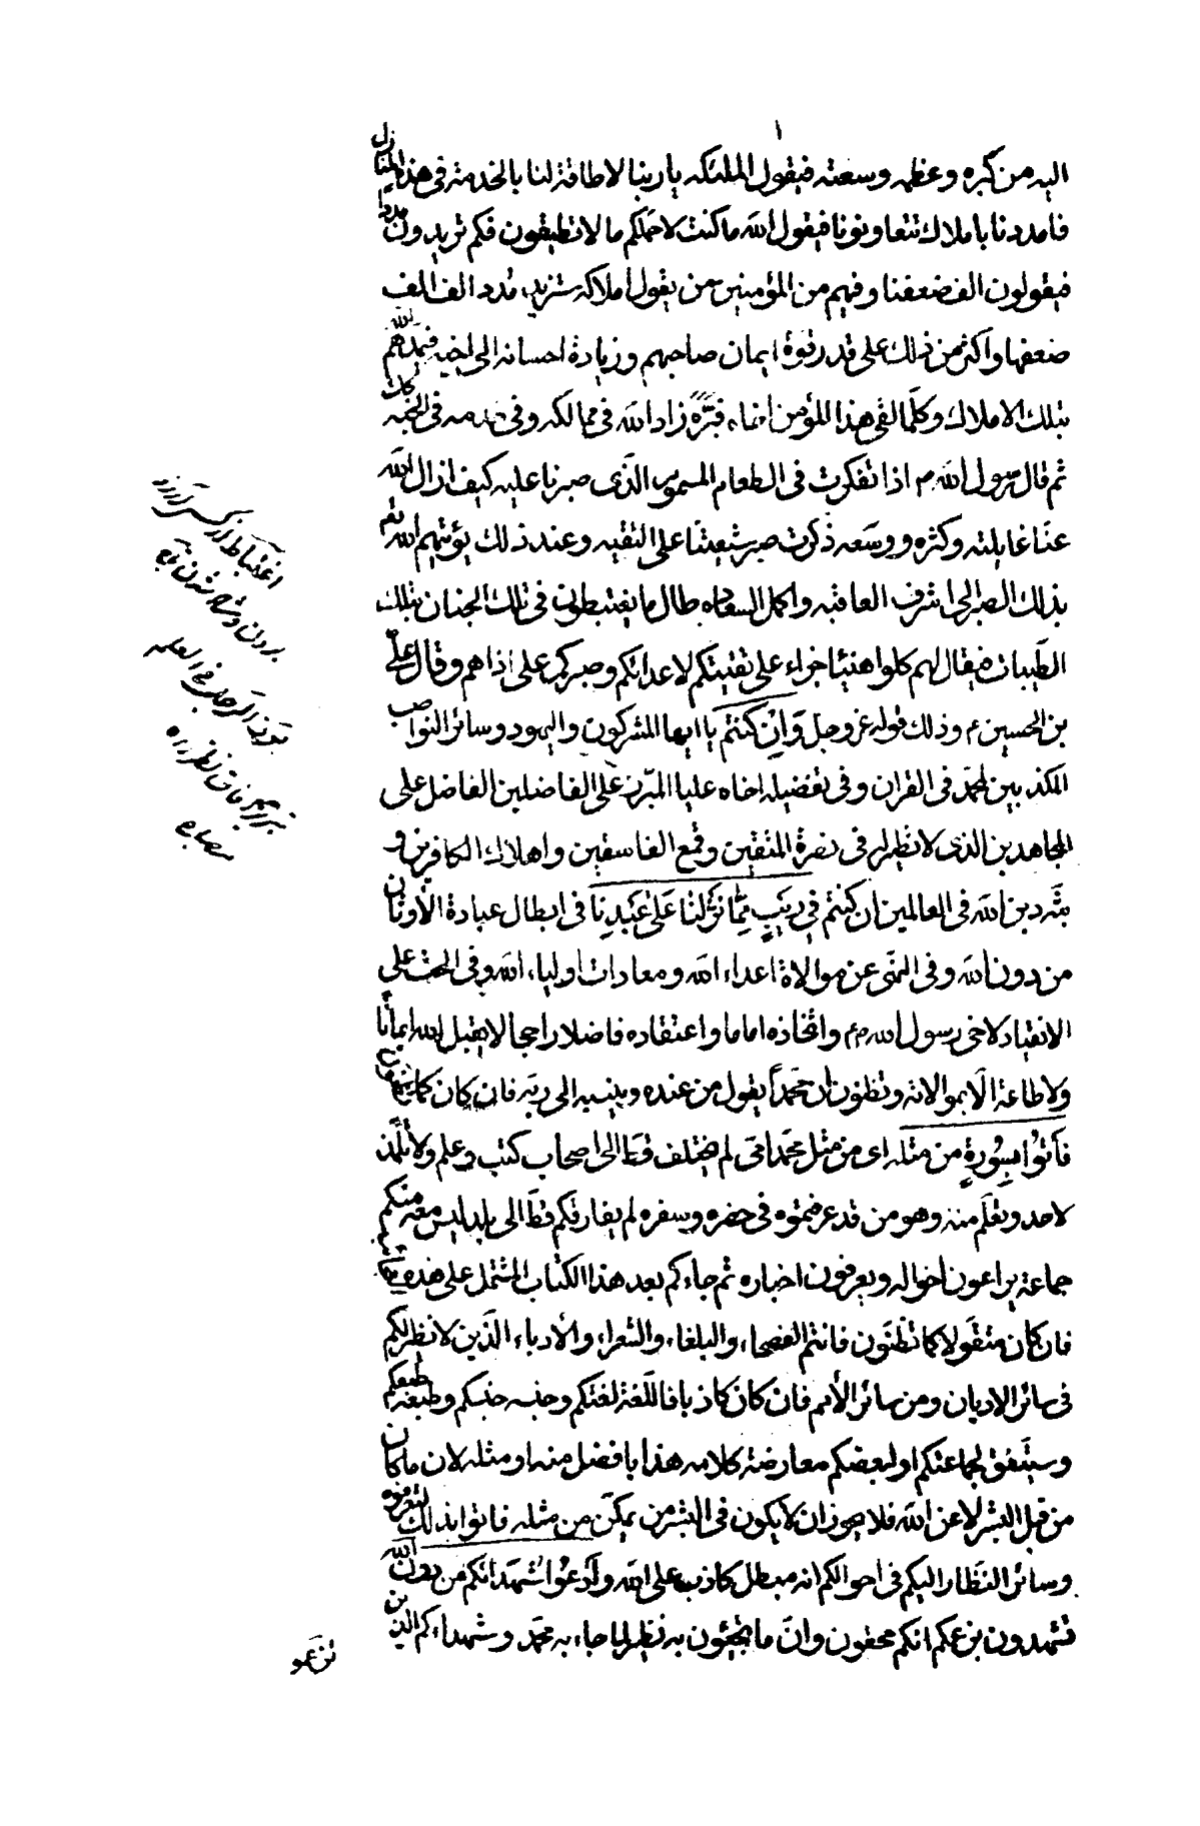 اليه من كبره وعظمه وسعته فيقول الملئكه يا ربنا لا طاقة لنا بالخدمة فى هذه المنازل
فامددنا باملاك تتعاونونا فيقول الله ما كنت لاحملكم ما لا تطيقون فكم تريدون مددا
فيقولون الف ضعفنا وفيهم من المؤمنين من يقول املاكه نستزيد مدد الف الف
ضعفها واكثر من ذلك على قدر قوة ايمان صاحبهم وزيادة احسانه الى اخيه فيمدهم الله
بتلك الاملاك وكلما لقى هذا المؤمن اخاه فبره زاد الله فى ممالكه وفى خدمه فى الجنه كذلك
ثم قال رسول الله م اذا تفكرت فى الطعام المسموم الذى صبرنا عليه كيف ازال الله
عنا غايلته وكثره ووسعه ذكرت صبر شيعتنا على التقيه وعند ذلك يؤتيهم الله تع
بذلك الصبر الى اشرف العاقبه واكمل السعاده طال ما يغتبطون فى تلك الجنان بتلك
الطيبات فيقال لهم كلوا هنيئا جزاء على تقيتكم لاعدائكم وصبركم على اذاهم وقال على
بن الحسين م وذلك قوله عز وجل وان كنتم يا ايها المشركون واليهود وسائر النواصب
المكذبين لمحمد فى القران وفى تفضيله اخاه عليا المبرز على الفاضلين الفاضل على
المجاهدين الذى لا نظير له فى نصرة المتقين وقمع الفاسقين واهلاك الكافرين و
بثه دين الله فى العالمين ان كنتم فى ريب مما نزلنا على عبدنا فى ابطال عبادة الأوثان
من دون الله وفى النهى عن موالاة اعداء الله ومعادات اولياء الله وفى الحث على
الانقياد لاخى رسول الله م واتخاذه اماما واعتقاده فاضلا راجحا لا يقبل الله ايمانا
ولا طاعة الا بموالاته وتظنون ان محمدا يقول من عنده وينسبه الى ربه فان كان كما تظنون
فأتوا بسورة من مثله اى من مثل محمد امى لم يختلف قط الى اصحاب كتب وعلم ولا تلمذ
لاحد وتعلم منه وهو من قد عرفتموه فى حضره وسفره لم يفارقكم قط الى بلد ليس معه منكم
جماعة يراعون احواله ويعرفون اخباره ثم جاءكم بعد هذا الكتاب المشتمل على هذه
فان كان متقولا كما تظنون فانتم الفصحاء والبلغاء والشعراء والأدباء الذين لا نظير لكم
فى سائر الاديان ومن سائر الأمم فان كان كاذبا فاللغة لغتكم وجنسه جنسكم وطبعه طبعكم
وسيتفق لجماعتكم او لبعضكم معارضة كلامه هذا بافضل منه او مثله لان ما كان
من قبل البشر لا عن الله فلا يجوز ان لا يكون فى البشر من يمكن من مثله فاتوا بذلك لتعرفوه
وسائر النظار اليكم فى احوالكم انه مبطل كاذب على الله وادعوا شهدائكم من دون الله
تشهدون بزعمكم انكم محقون وان ما تجيئون به نظير لما جاء به محمد وشهداءكم الذين
تزعمو